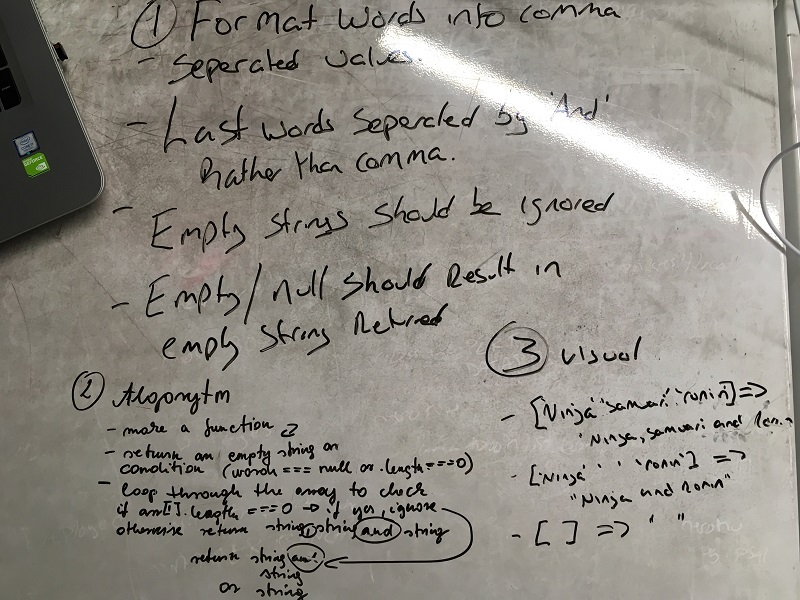 ① Format Words into comma
- seperated values.
- Last words seperated by 'And'
Rather than comma.
- Empty strings should be ignored
- Empty/null should Result in
empty string Returned
② Algorytm
- make a function
- return an empty string on
condition (words === null or .length===0)
- loop through the array to check
if arr[i].length === 0 → if yes, ignore
otherwise return string, string and string
return string and
string
or string
③ visual
- [Ninja' 'samurai' 'ronin'] =>
"Ninja, samurai and Ronin
- ['Ninja' ' ' 'ronin'] =>
"Ninja and Ronin"
- [ ] => " "